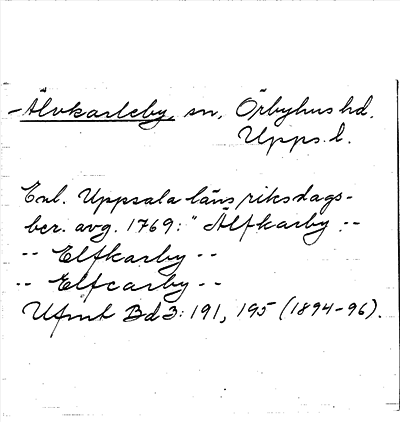 - Älvkarleby, sn, Örbyhus hd.
Upps. l.
Enl. Uppsala läns riksdags-
ber. avg. 1769: " Älfkarby :--
-- Elfkarby --
-- Elfcarby --
Ufmt Bd 3: 191, 195 (1894-96).